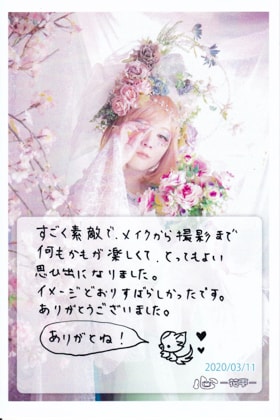 すごく素敵で、メイクから撮影まで
何もかもが楽しくて、とってもよい
思ひ出になりました。
イメージどおりすばらしかったです。
ありがとうございました。
ありがとね！
2020/03/11